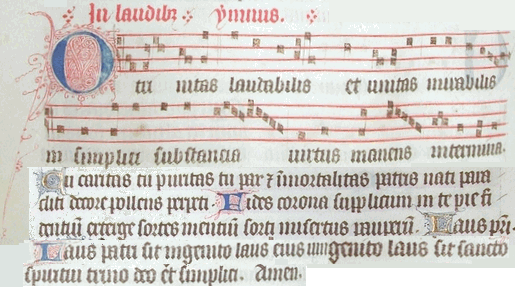 In laudibz ymnus.
O tri nitas laudabilis et unitas mirabilis
in simplici substancia uirtus manens intermina.
Tu caritas tu puritas tu par ⁊ inmortalitas patris nati para
cliti decore pollens perpeti. Fides corona supplicum in te pie fi
dentium erige sortes mentium sorti misertus pauperum. Laus pri.
Laus patri sit ingenito laus eius unigenito laus sit sancto
spiritui trino deo et simplici. Amen.